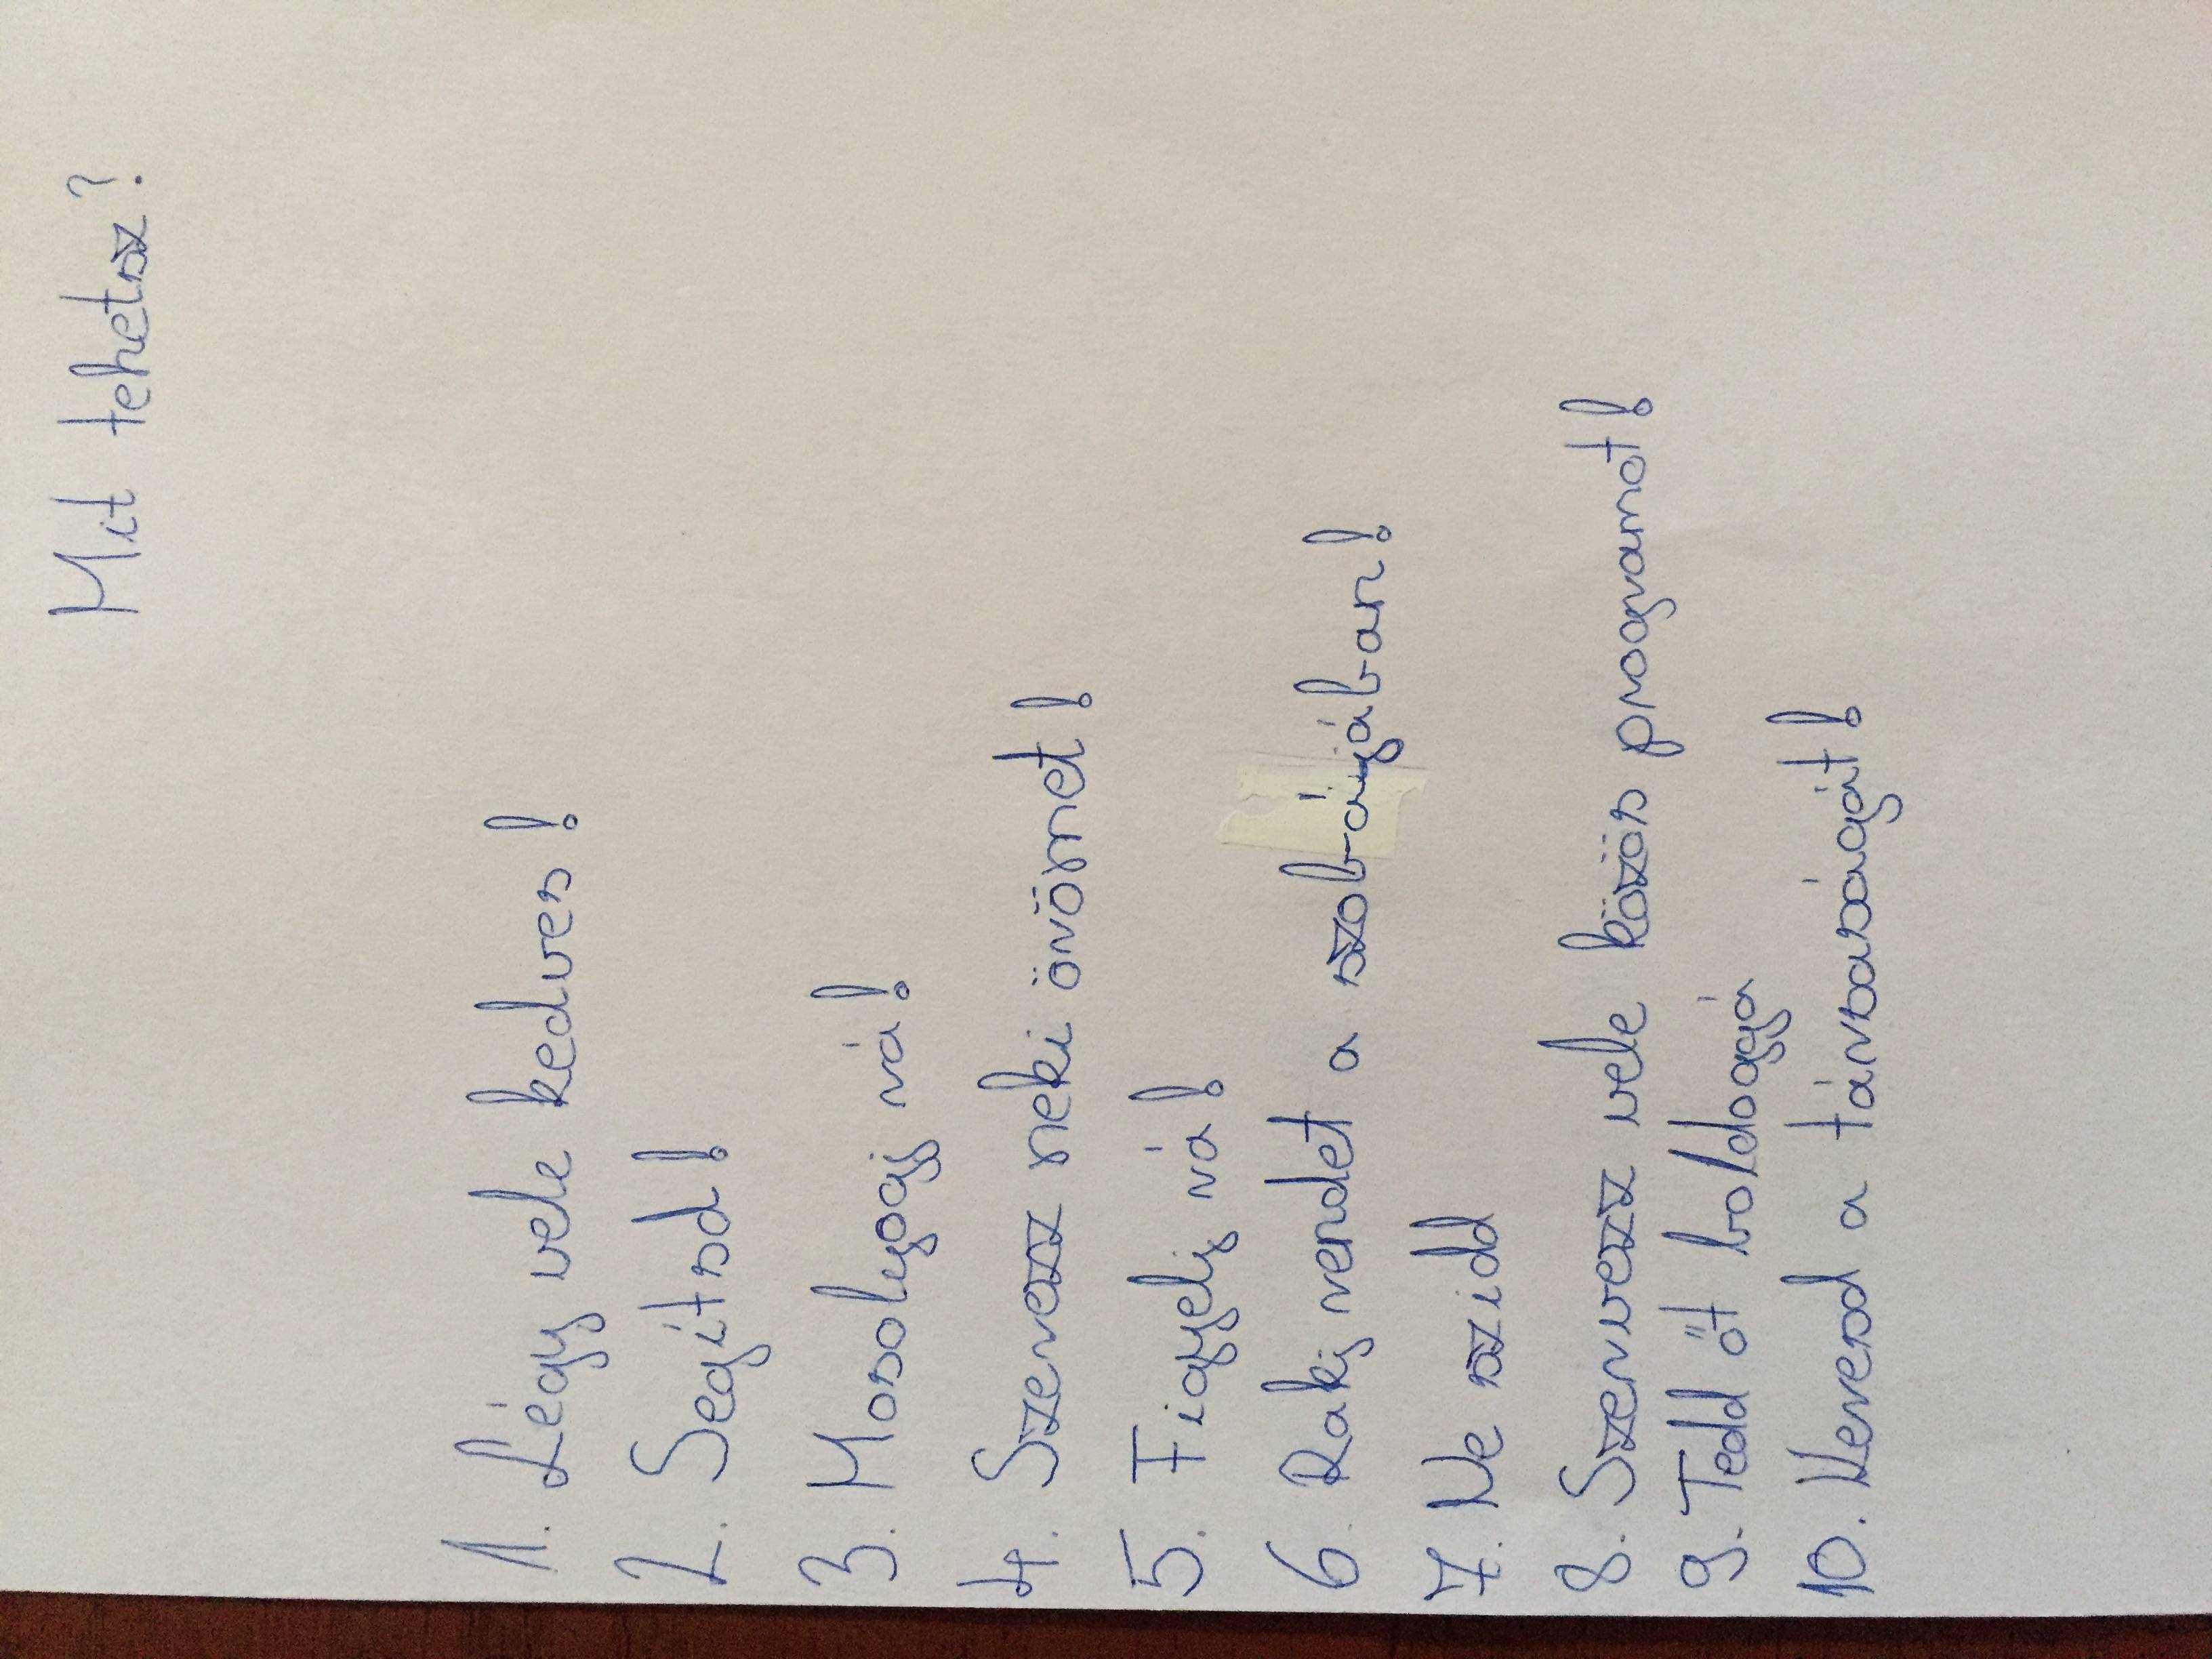 Mit tehetsz?
1. Légy vele kedves!
2. Segítsd!
3. Mosolyogj rá!
4. Szerezz neki örömet!
5. Figyelj rá!
6. Rakj rendet a szobájában!
7. Ne szidd
8. Szervezz vele közös programot!
9. Tedd őt boldoggá
10. Keresd a társaságát!